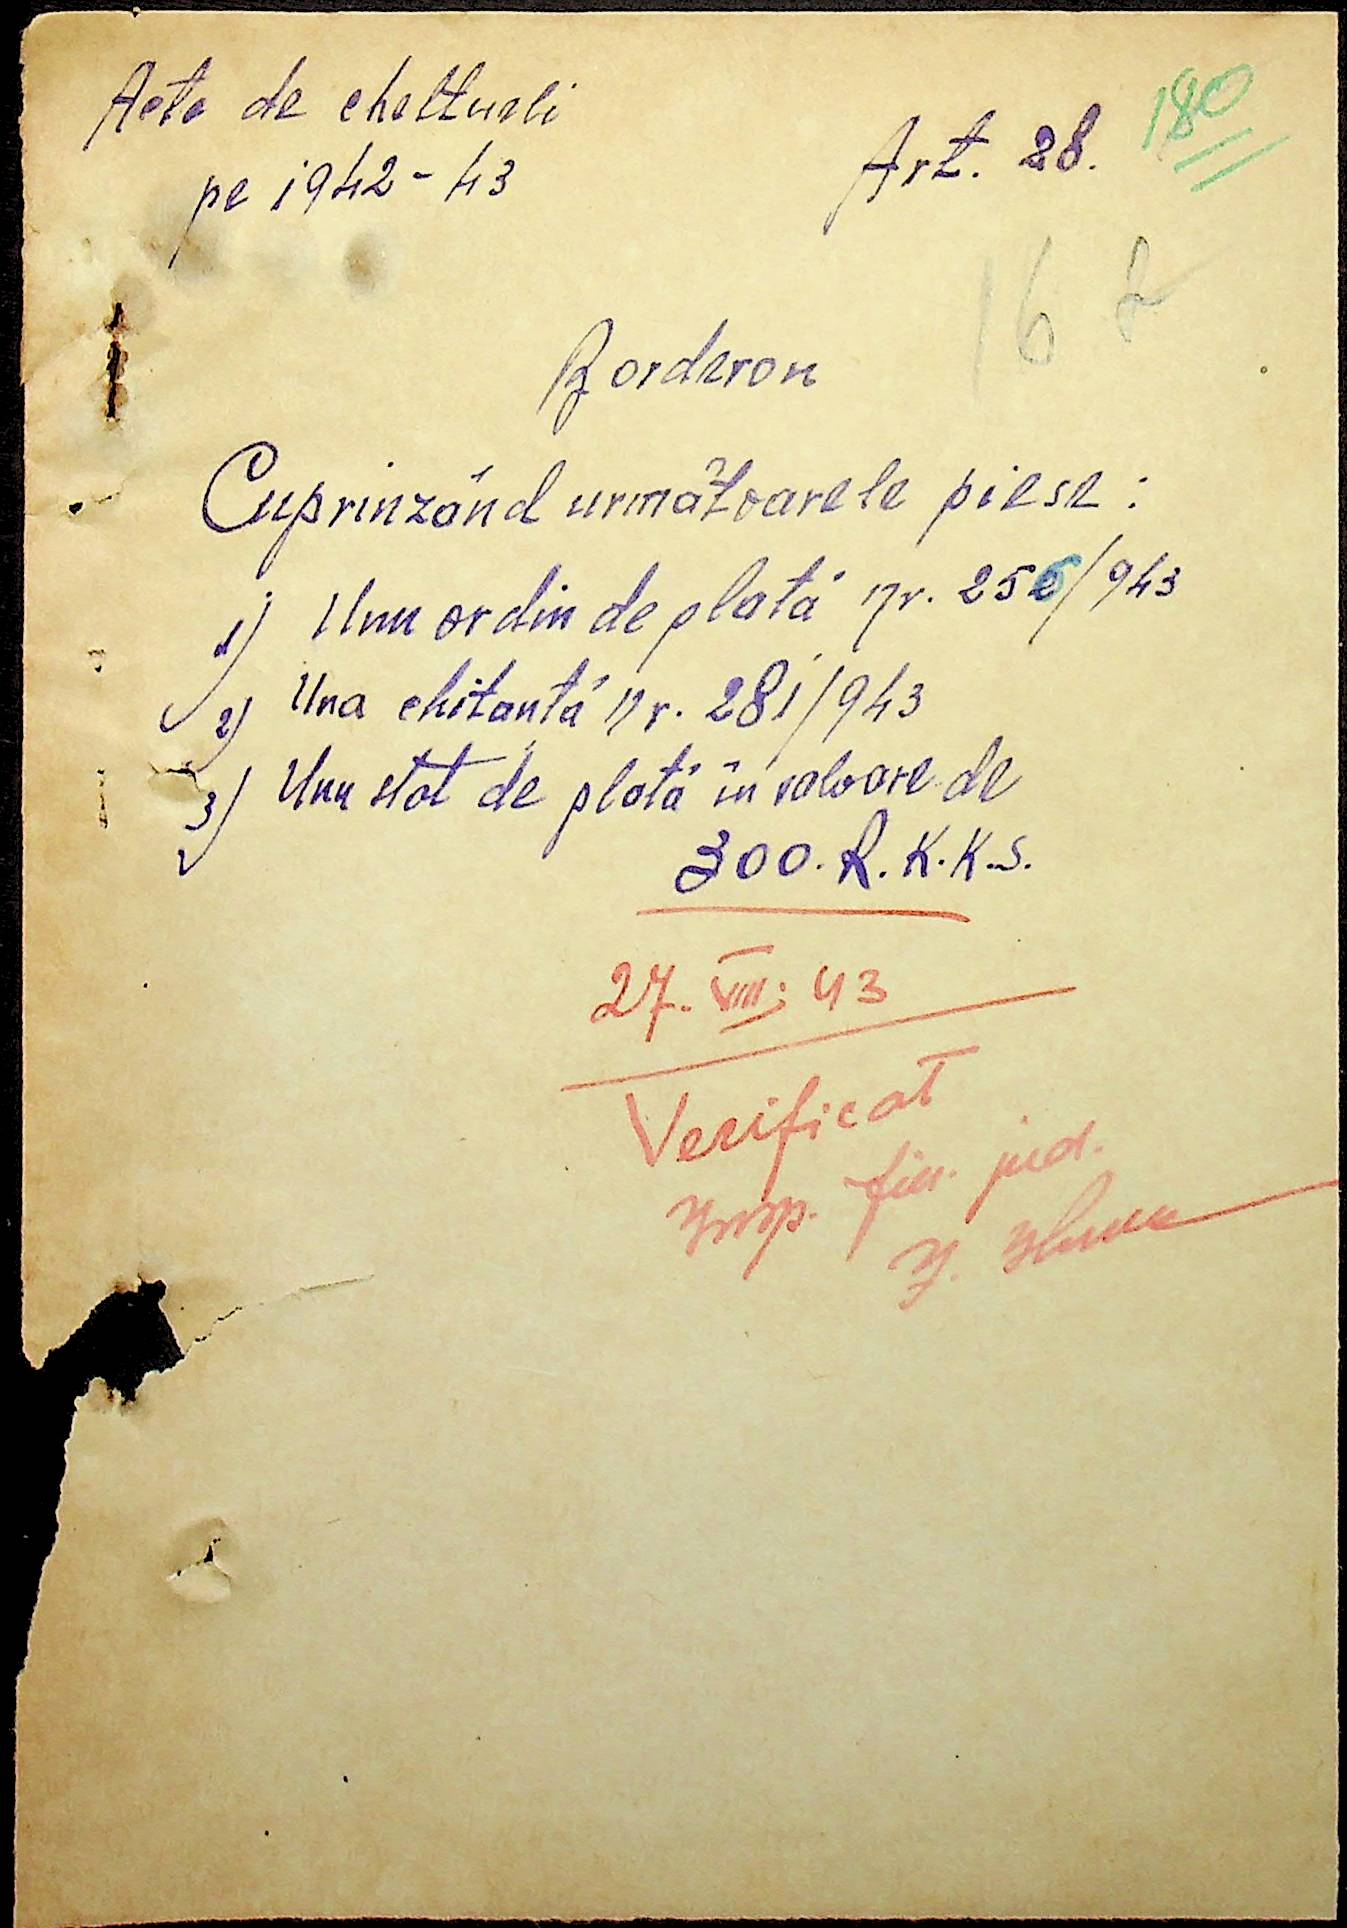 Acte de cheltueli
pe 1942-43
Art. 28.
180
16
Borderou
Cuprinzând următoarele piese:
1) Unu ordin de plată nr. 256/943
2) Una chitanță nr. 281/943
3) Unu stat de plată în valoare de
300. R. K. K. S.
27. VIII. 43
Verificat
Insp. fin. jud.